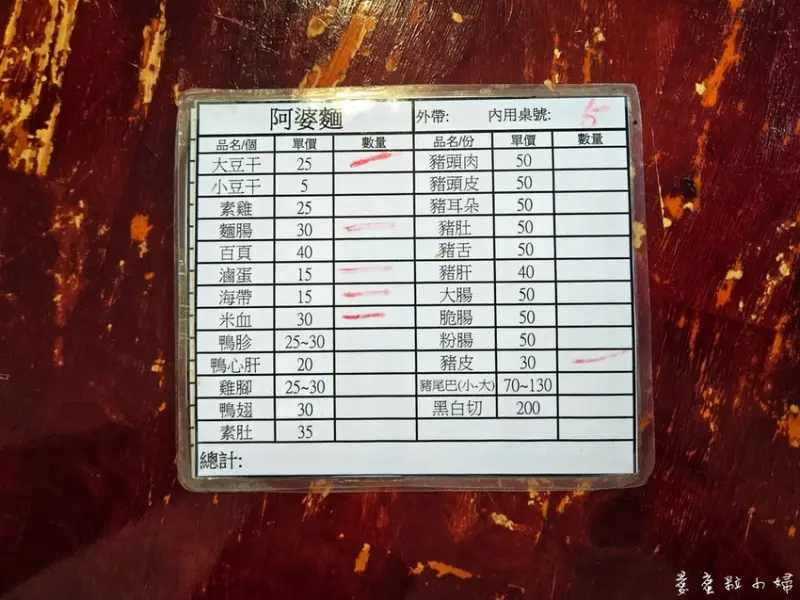 阿婆麵 外帶: 內用桌號: 5
品名/個 單價 數量 品名/份 單價 數量
大豆干 25 一 豬頭肉 50
小豆干 5 豬頭皮 50
素雞 25 豬耳朵 50
麵腸 30 一 豬肚 50
百頁 40 豬舌 50
滷蛋 15 一 豬肝 40
海帶 15 一 大腸 50
米血 30 一 脆腸 50
鴨胗 25~30 粉腸 50
鴨心肝 20 豬皮 30 一
雞腳 25~30 豬尾巴(小-大) 70~130
鴨翅 30 黑白切 200
素肚 35
總計: